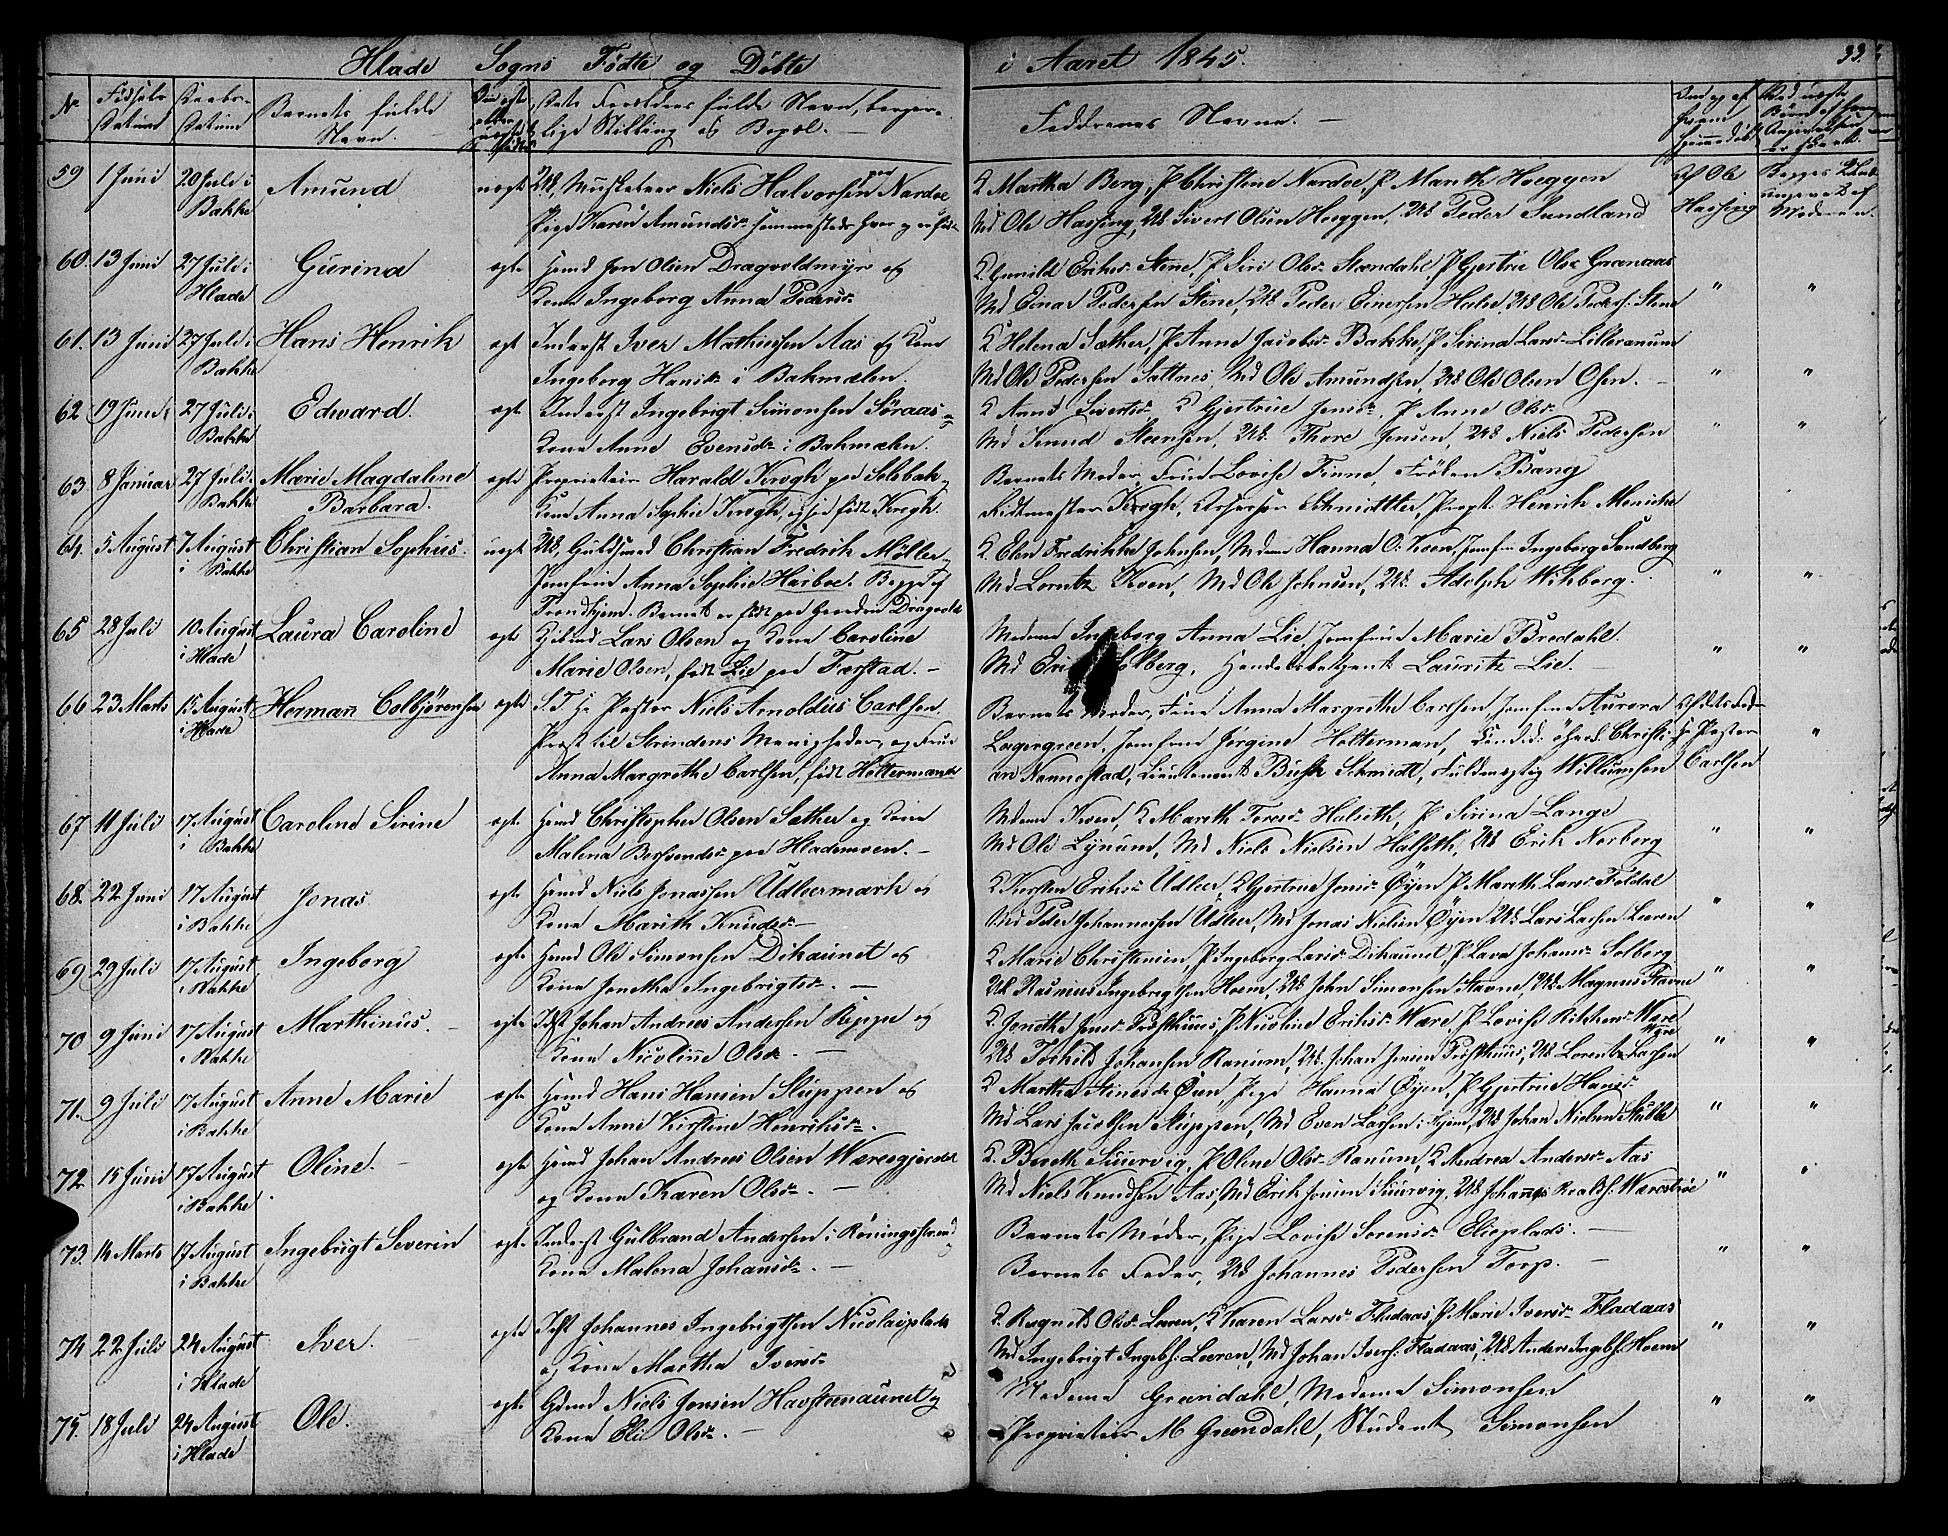 Hlade Sogns Fødte og Døbte i Aaret 1845. 33.
No Fødsels Datum Daabs Datum Barnets fulde Navn. Faddrenes Navne.
59 1 Juni 20 Juli i Bakke Amund uægte UK, Musketeer Niels Halvorsen Nardoe
Pige Karen Amundsd.
K Martha Berg, P Christine Nardoe, P Marith Hoeggen
Md Ole Hassing, UK Sivert Olsen Hoeggen, UK Peder Sundland
Af Ole Hassing
60. 13 Juni 27 Juli i Hlade Gurina ægte Huusmd Jon Olsen Dragvoldmyr og
Kone Ingeborg Anna Pedersd.
K Gunild Eriksd. Stene, P Siri Olsd. Stendahl, P Gjertrue Olsd. Grænaas
Md Einar Pedersen Stene, UK Peder Einersen Halse, UK Ole Peders. Stene
" "
61. 13 Juni 27 Juli i Bakke Hans Henrik ægte Inderst Iver Mathiesen Aas og Kone
Ingeborg Hansd. i Bakmælen.
K Helena Sæther, P Anne Jacobsd. Bakke, P Sirina Larsd. Lilleranum
Md Ole Pedersen Saltnes, Md Ole Amundsen, UK Ole Olsen Osen.
" "
62 19 Juni 27 Juli i Bakke Edward. ægte Inderst Ingebrigt Simonsen Søraas og
Kone Anne Evensd. i Bakmælen.
K Anne Sivertsd. K Gjertrue Jensd. P Anne Olsd.
Md Knud Steensen, UK Thore Jensen, UK Niels Pedersen
" "
63. 8 Januar 27 Juli i Bakke Marie Magdalene Barbara. ægte Proprietair Harald Krogh paa Solbak
Kone Anna Sophie Krogh, født Krogh.
Barnets Moder, Frue Lovise Finne, Frøken Bang
Ritmester Krogh, Assessor Schmidtter, Provst Henrik Menicke
64. 5 August 7 August i Bakke Christian Sophus. uægte UK, Guldsmed Christian Fredrik Møller
Jomfrue Anna Sophie Harboe. Begge af
Trondhjem. Barnet er født paa Gaarden Dragvold
K Elen Fredrikke Johnsen, Madame Hanna O. Koen, Jomfru Ingeborg Sandberg
Md Lorntz Koen, Md Ole Johnsen, UK Adolph Wikberg.
" "
65 28 Juli 10 August i Hlade Laura Caroline ægte Lars Olsen og Kone Caroline
Marie Olsen, født Lie paa Færstad.
Madame Ingeborg Anna Lie, Jomfrue Marie Bredahl.
Md Erik Solberg, Handelsbetjent Lauritz Lie.
" "
66 23 Marts 15 August i Hlade Herman Colbjørensen ægte S.T. Hr Pastor Niels Arnoldus Carlsen
Provst til Strindens Menigheder, og Frue
Anna Margrethe Carlsen, født Holtermann
Barnets Moder, Frue Anna Margrethe Carlsen, Jomfrue Aurora
Lagergreen, Jomfrue Jørgine Holterman, Christi-
an Nannestad, Lieutenant Busk Schmidt, Fuldmægtig Willumsen
Hr Pastor Carlsen "
67 11 Juli 17 August i Bakke Caroline Sirine ægte Huusmd Christopher Olsen Sæther og Kone
Malena Berhvendsd. paa Hlademoen.
Madame Koen, K Marith Toresd. Halseth, P Sirina Lange
Md Ole Lynum, Md Niels Nielsen Halseth, UK Erik Norberg
" "
68. 22 Juni 17 August i Bakke Jonas ægte Huusmd Niels Jonassen Udleermark og
Kone Marith Knudsd.
K Kirsten Eriksd. Udleer, K Gjertrue Jonsd. Øyen, P Mareth Larsd. Foldal
Md Peder Johannessen Udleer, Md Jonas Nielsen Øyen, UK Lars Larsen Leeren
" "
69. 29 Juli 17 August i Bakke Ingeborg ægte Huusmd Ole Simonsen Dihaunet og
Kone Jonetha Ingebrigtsd.
K Marie Christensen, P Ingeborg Larsd. Dihaunet, P Lava Johansd. Solberg
UK Rasmus Ingebrigtsen Hoem, UK John Simonsen Stavne, UK Magnus Stavne
" "
70 9 Juni 17 August i Bakke Marthinus. ægte Johan Andreas Andersen Reppe og
Kone Nicoline Olsd.
K Jonetha Jonsd. Presthuus, P Nicoline Eriksd. Være, P Lovise Rikhardsd. Være
UK Torkild Johansen Ranum, UK Johan Jonsen Presthuus, UK Lorents Larsen Være
" "
71. 9 Juli 17 August i Bakke Anne Marie ægte Huusmd Hans Hansen Sluppen og
Kone Anne Kirstine Henriksd.
K Martha Steinsd. Øien, Pige Hanna Øyen, P Gjertrue Hansd.
Md Lars Jacobsen Sluppen, Md Even Larsen i Hjem, UK Johan Nielsen
" "
72. 15 Juni 17 August i Bakke Oline. ægte Huusmd Johan Andreas Olsen Wæresgjerdet
og Kone Karen Olsd.
K Bereth Siuervig, P Oline Olsd. Ranum, K Andrea Andersd. Aas
Md Niels Knudsen Aas, Md Erik Jonsen Siuervig, UK Johannes Wæreströe
" "
73. 14 Marts 17 August i Bakke Ingebrigt Severin ægte Inderst Gulbrand Andersen i Röningsstrand
Kone Malena Johansd.
Barnets Moder, Pige Lovise Sorensd. Elieplads.
Barnets Fader, UK Johannes Pedersen Torp.
" "
74 22 Juli 24 August i Hlade Iver. ægte Johannes Ingebrigtsen Nicolaiplads
og Kone Martha Iversd.
K Ragnild Olsd. Leeren, K Karen Larsd. Fladaas, P Marie Iversd. Fladaas
Md Ingebrigt Ingebs. Leeren, Md Johan Ivers. Fladaas, UK Anders Ingebs. Hoem
" "
75. 18 Juli 24 August i Hlade Ole. ægte Gdmd Niels Jonsen Havstenaunet og
Kone Eli Olsd.
Madame Grøndahl, Madame Simonsen
Proprietair M Grøndahl, Student Simonsen
" "